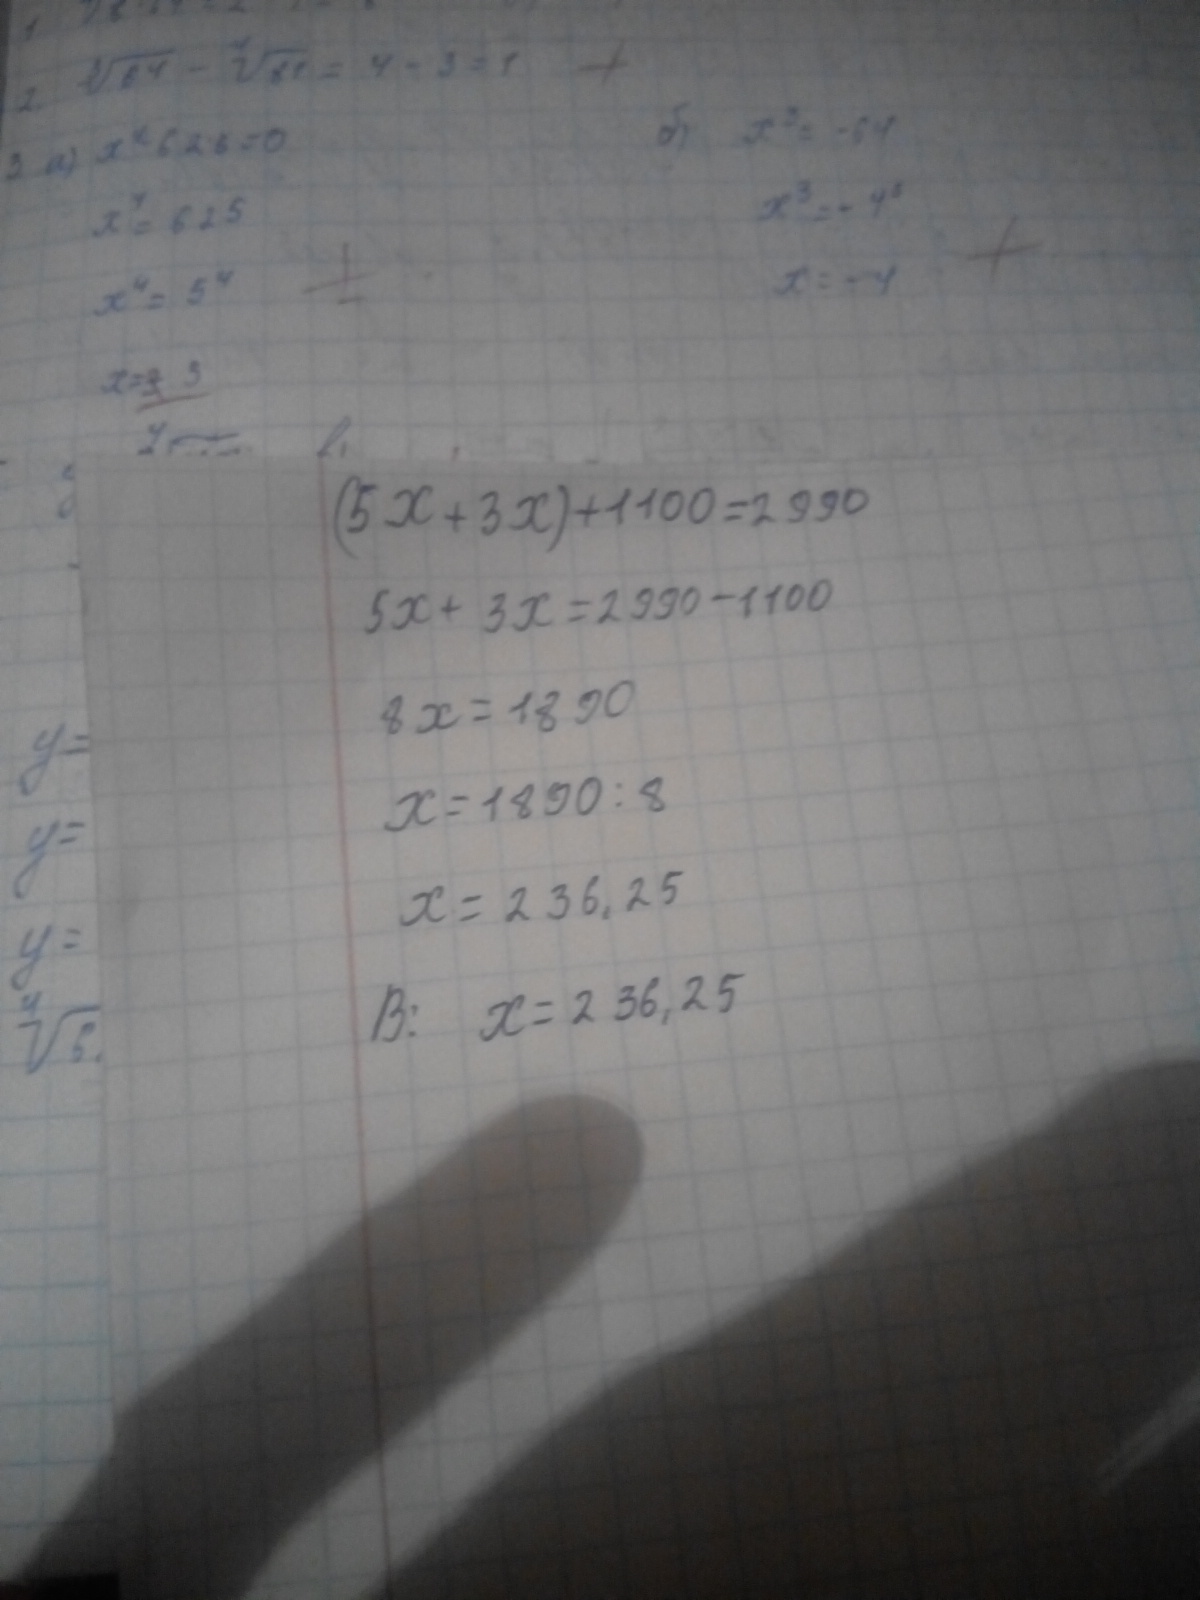 2. ∛64 - ∜81 = 4 - 3 = 1 +
3 а) x⁴ 625=0
x⁴= 625
x⁴= 5⁴
б) x³= -64
x³=- 4³
x=-4 +
(5x+3x)+1100=2990
5x+ 3x=2990-1100
8x=1890
x=1890:8
x=236,25
В: x=236,25
y=
y=
y=